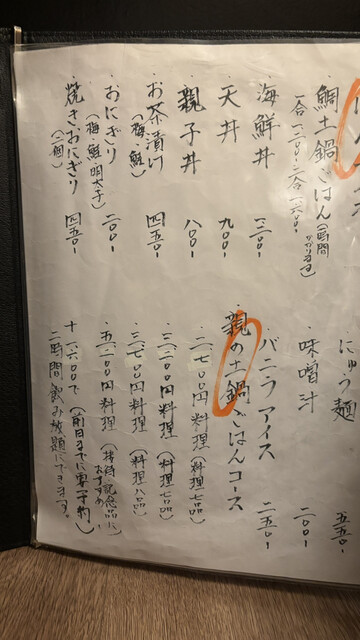 鯛土鍋ごはん(時間かかります)
一合一三〇〇-二合一六〇〇-
海鮮丼 一三〇〇-
天丼 九〇〇-
親子丼 八〇〇-
お茶漬け(梅・鮭) 四五〇-
おにぎり(梅・鮭・明太子) 二〇〇-
焼きおにぎり(二個) 四五〇-
にゅう麺 五五〇-
味噌汁 二〇〇-
バニラアイス 二五〇-
鯛の土鍋ごはんコース
二七〇〇円料理(料理七品)
三二〇〇円料理(料理七品)
三七〇〇円料理(料理八品)
五二〇〇円料理(接待・記念品におすすめ)
十一六〇〇で(前日までに要予約)
二時間飲み放題にできます。